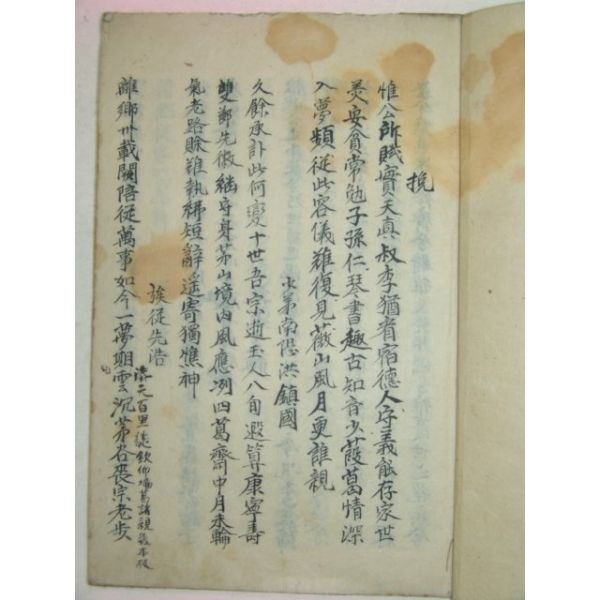 挽
惟公所賦實天真叔季猶看宿德人守義能存家世
美安貧常勉子孫仁琴書趣古知音少葭莩情深
入夢頻從此容儀難復見薇山風月更誰親
弟南陽洪鎭國
久餘承訃此何變十世吾宗逝玉人八旬遐算康寧壽
雙鄕先徽繼守身茅山境內風應冽四葛齋中月未輪
氣老路賖難執紼短辭遙寄獨憔神
族從先浩
離鄕卅載闕陪從萬事如今一夢期雲沉茅谷喪宗老步